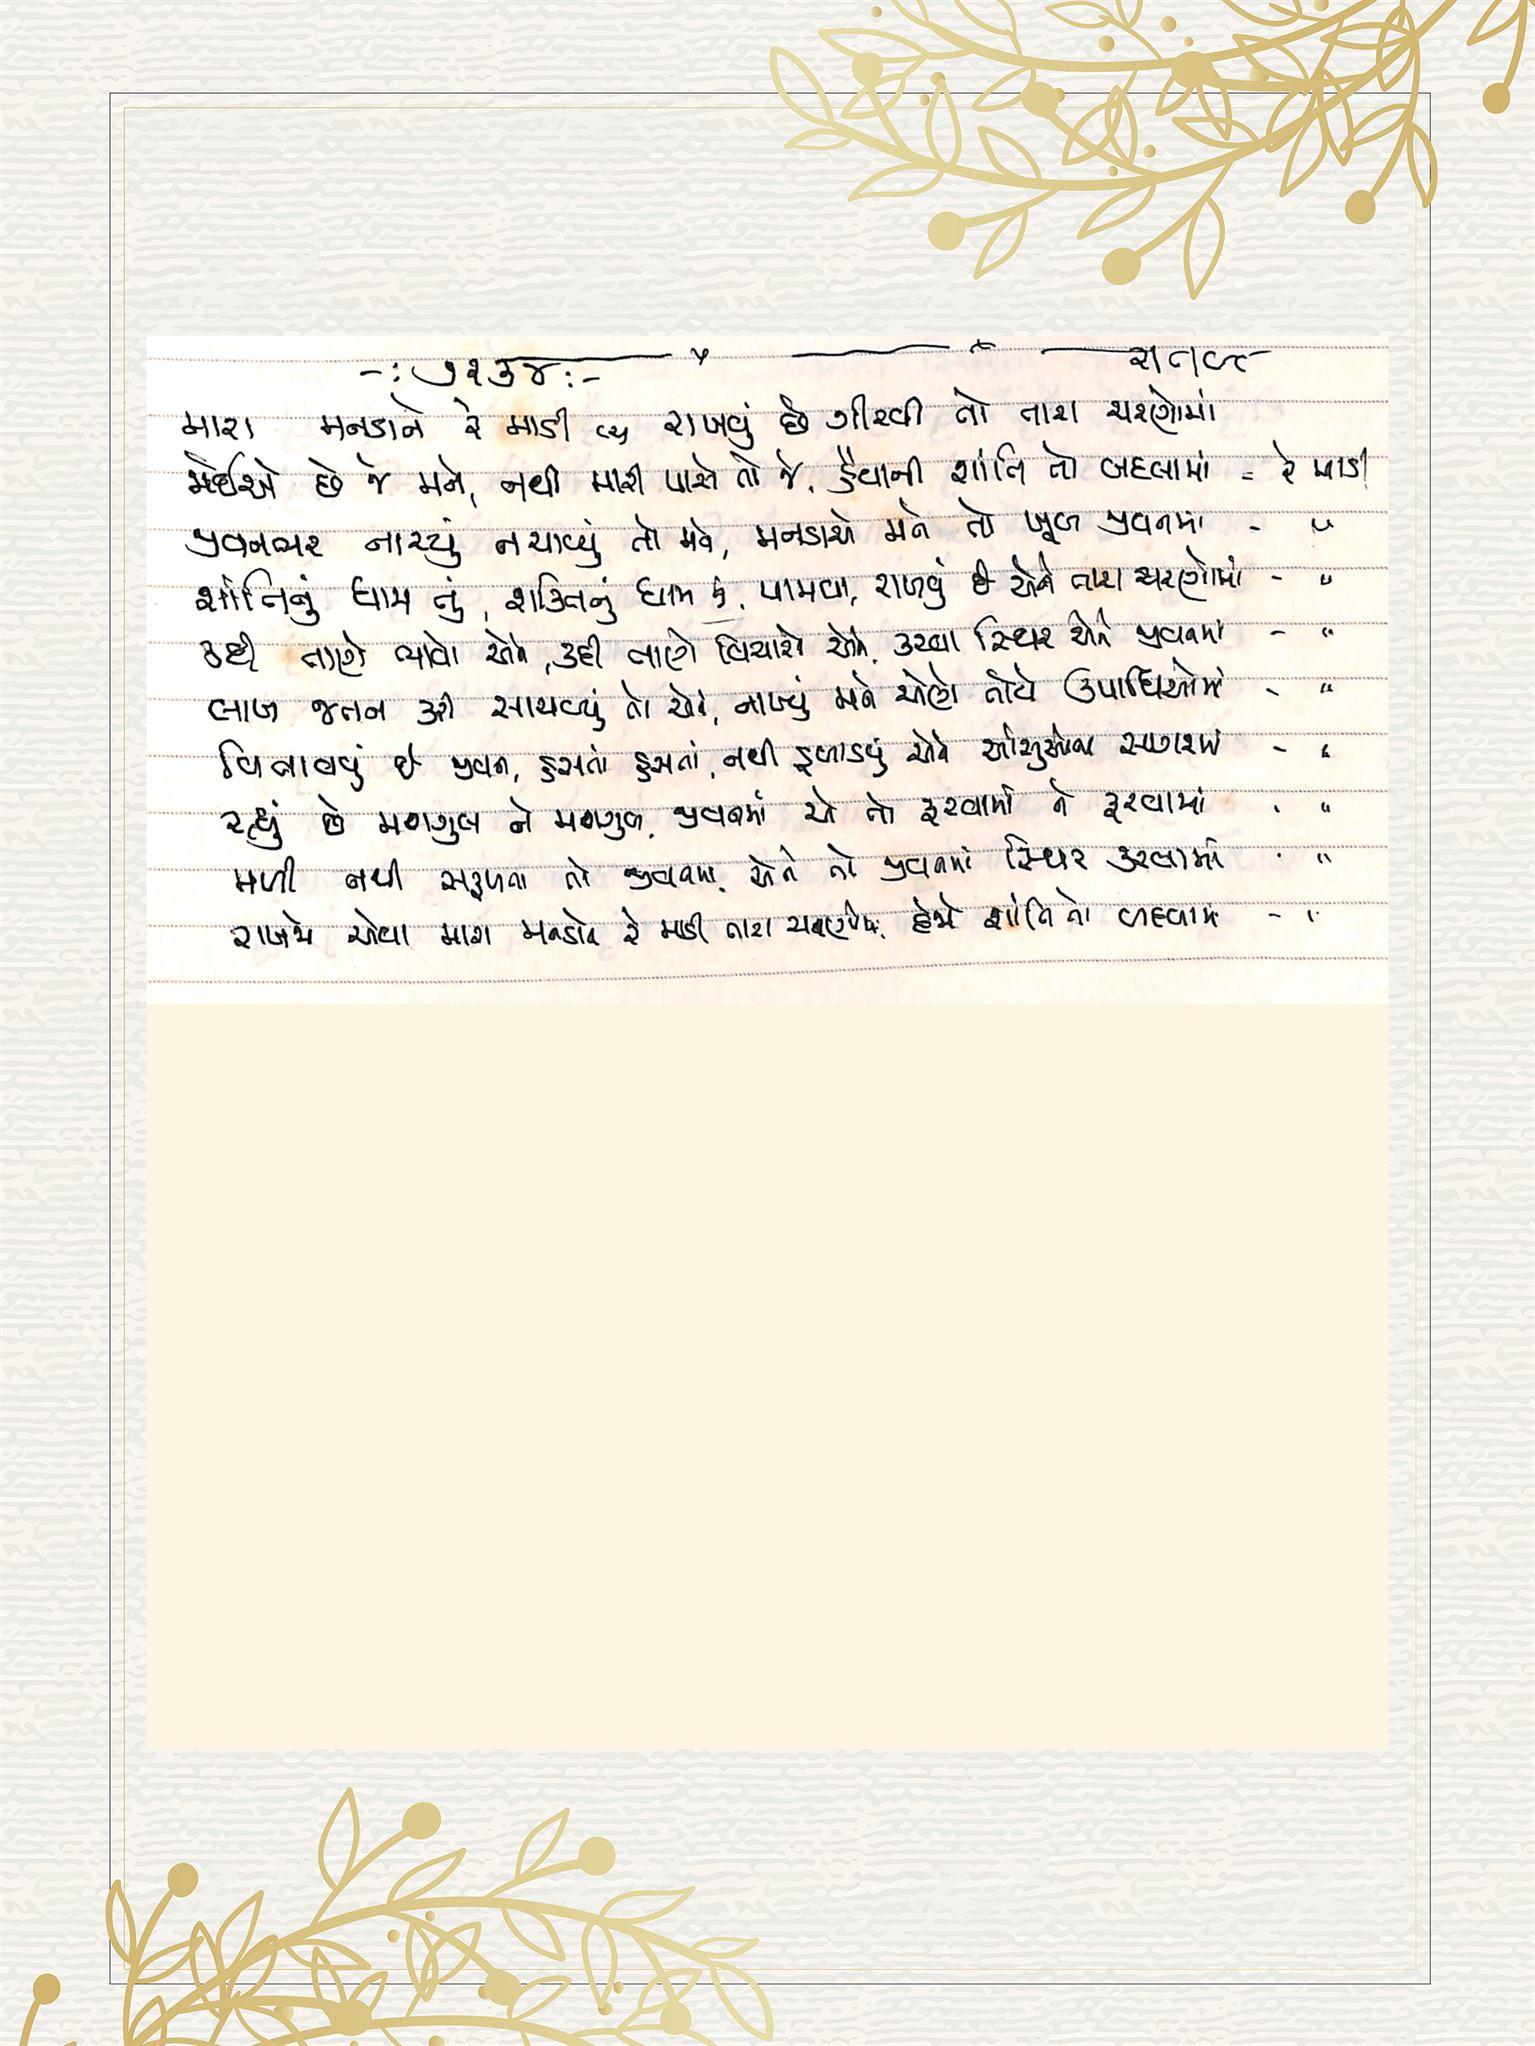 -: ૭૨૩૪ :-
મારા મનડાને રે માડી રાખવું છે ગીરવી તો તારા ચરણોમાં
જોઈએ છે જે મને, નથી મારી પાસે તો જે, દેવાની શાંતિ તો બદલામાં = રે માડી
જીવનભર નાચ્યું નચાવ્યું તો મને, મનડાએ મને તો ખૂબ જીવનમાં - "
શાંતિનું ધામ તું, શક્તિનું ધામ તું, પામવા, રાખવું છે એને તારા ચરણોમાં - "
કદી તાણે ભાવો એને, કદી તાણે વિચારો એને, કરવા સ્થિર એને જીવનમાં - "
લાખ જતન કરી સાચવ્યું તો એને, નાખ્યું મને એણે તોયે ઉપાધિઓમાં - "
વિતાવવું છે જીવન, હસતાં હસતાં, નથી ડુબાડવું એને આંસુઓના સાગરમાં - "
રહ્યું છે મશગુલ ને મશગુલ, જીવનમાં એ તો ફરવામાં ને ફરવામાં - "
મળી નથી સફળતા તો જીવનમાં, એને તો જીવનમાં સ્થિર કરવામાં - "
રાખજે એવા મારા મનડાને રે માડી તારા ચરણોમાં, દેજે શાંતિ તો બદલામાં - "